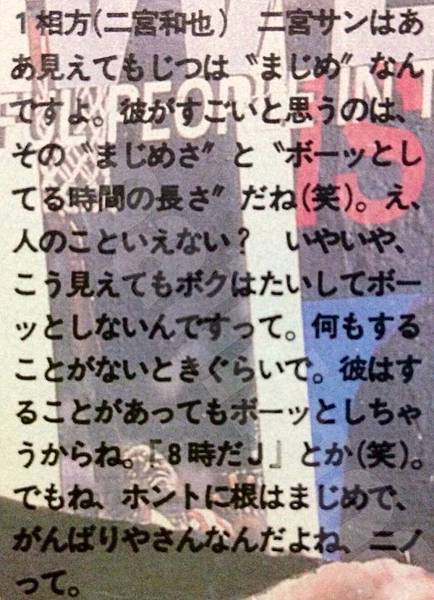 1 相方(二宮和也)　二宮サンはあ
あ見えてもじつは〝まじめ〟なん
ですよ。彼がすごいと思うのは、
その〝まじめさ〟と〝ボーッとし
てる時間の長さ〟だね(笑)。え、
人のこといえない?　いやいや、
こう見えてもボクはたいしてボー
ッとしないんですって。何もする
ことがないときぐらいで。彼はす
ることがあってもボーッとしちゃ
うからね。『8時だJ』とか(笑)。
でもね、ホントに根はまじめで、
がんばりやさんなんだよね、ニノ
って。
FUL PEOPLE IN T
IS